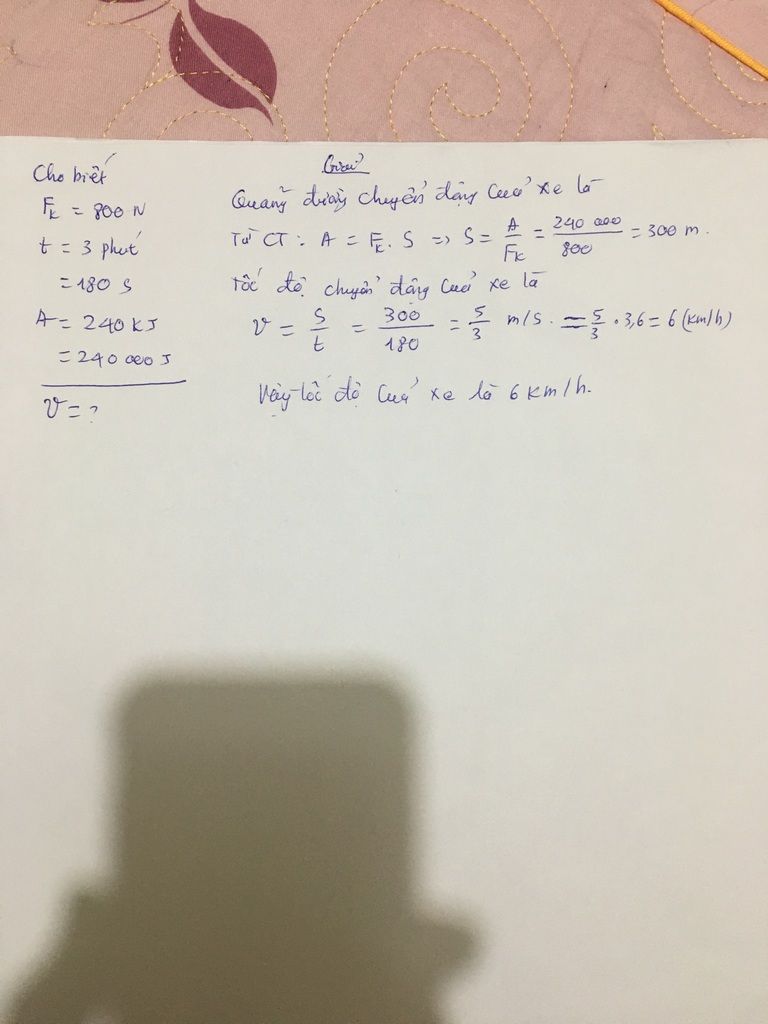 Cho biết
F_k = 800 N
t = 3 phút
= 180 s
A = 240 KJ
= 240 000 J
v = ?
Giải
Quãng đường chuyển động của xe là
Từ CT: A = F_k . S => S = A/F_k = 240 000/800 = 300 m.
Tốc độ chuyển động của xe là
v = S/t = 300/180 = 5/3 m/s. = 5/3 . 3,6 = 6 (km/h)
Vậy tốc độ của xe là 6 km/h.